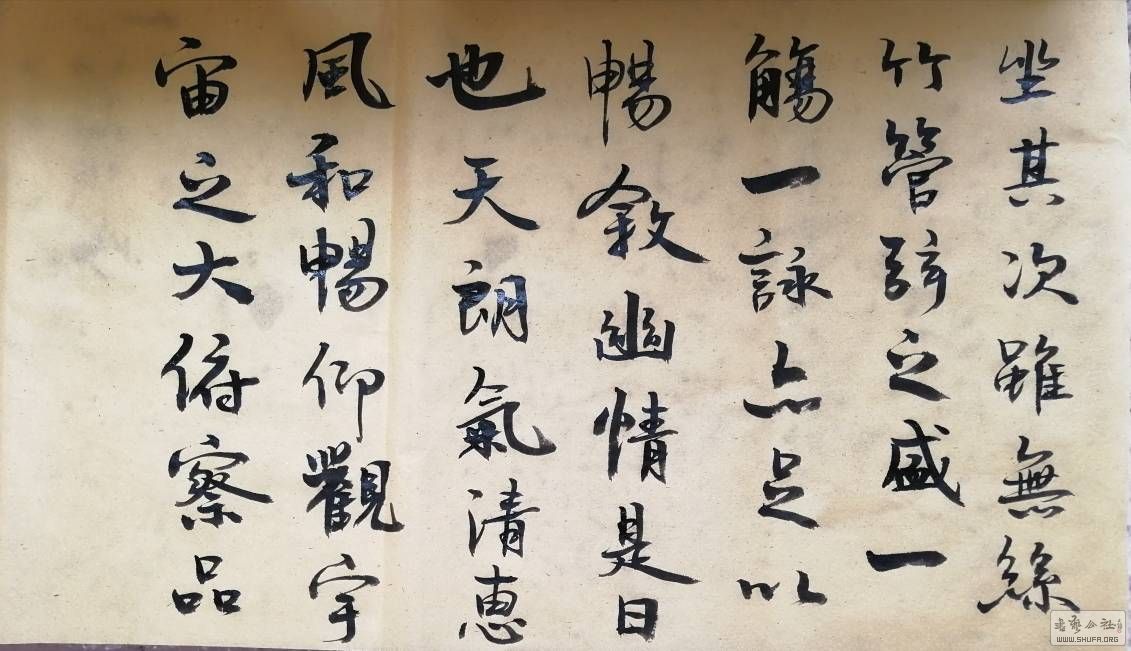 坐其次雖無絲
竹管弦之盛一
觴一詠亦足以
暢敘幽情是日
也天朗氣清惠
風和暢仰觀宇
宙之大俯察品
書藝公社
WWW.SHUFA.ORG